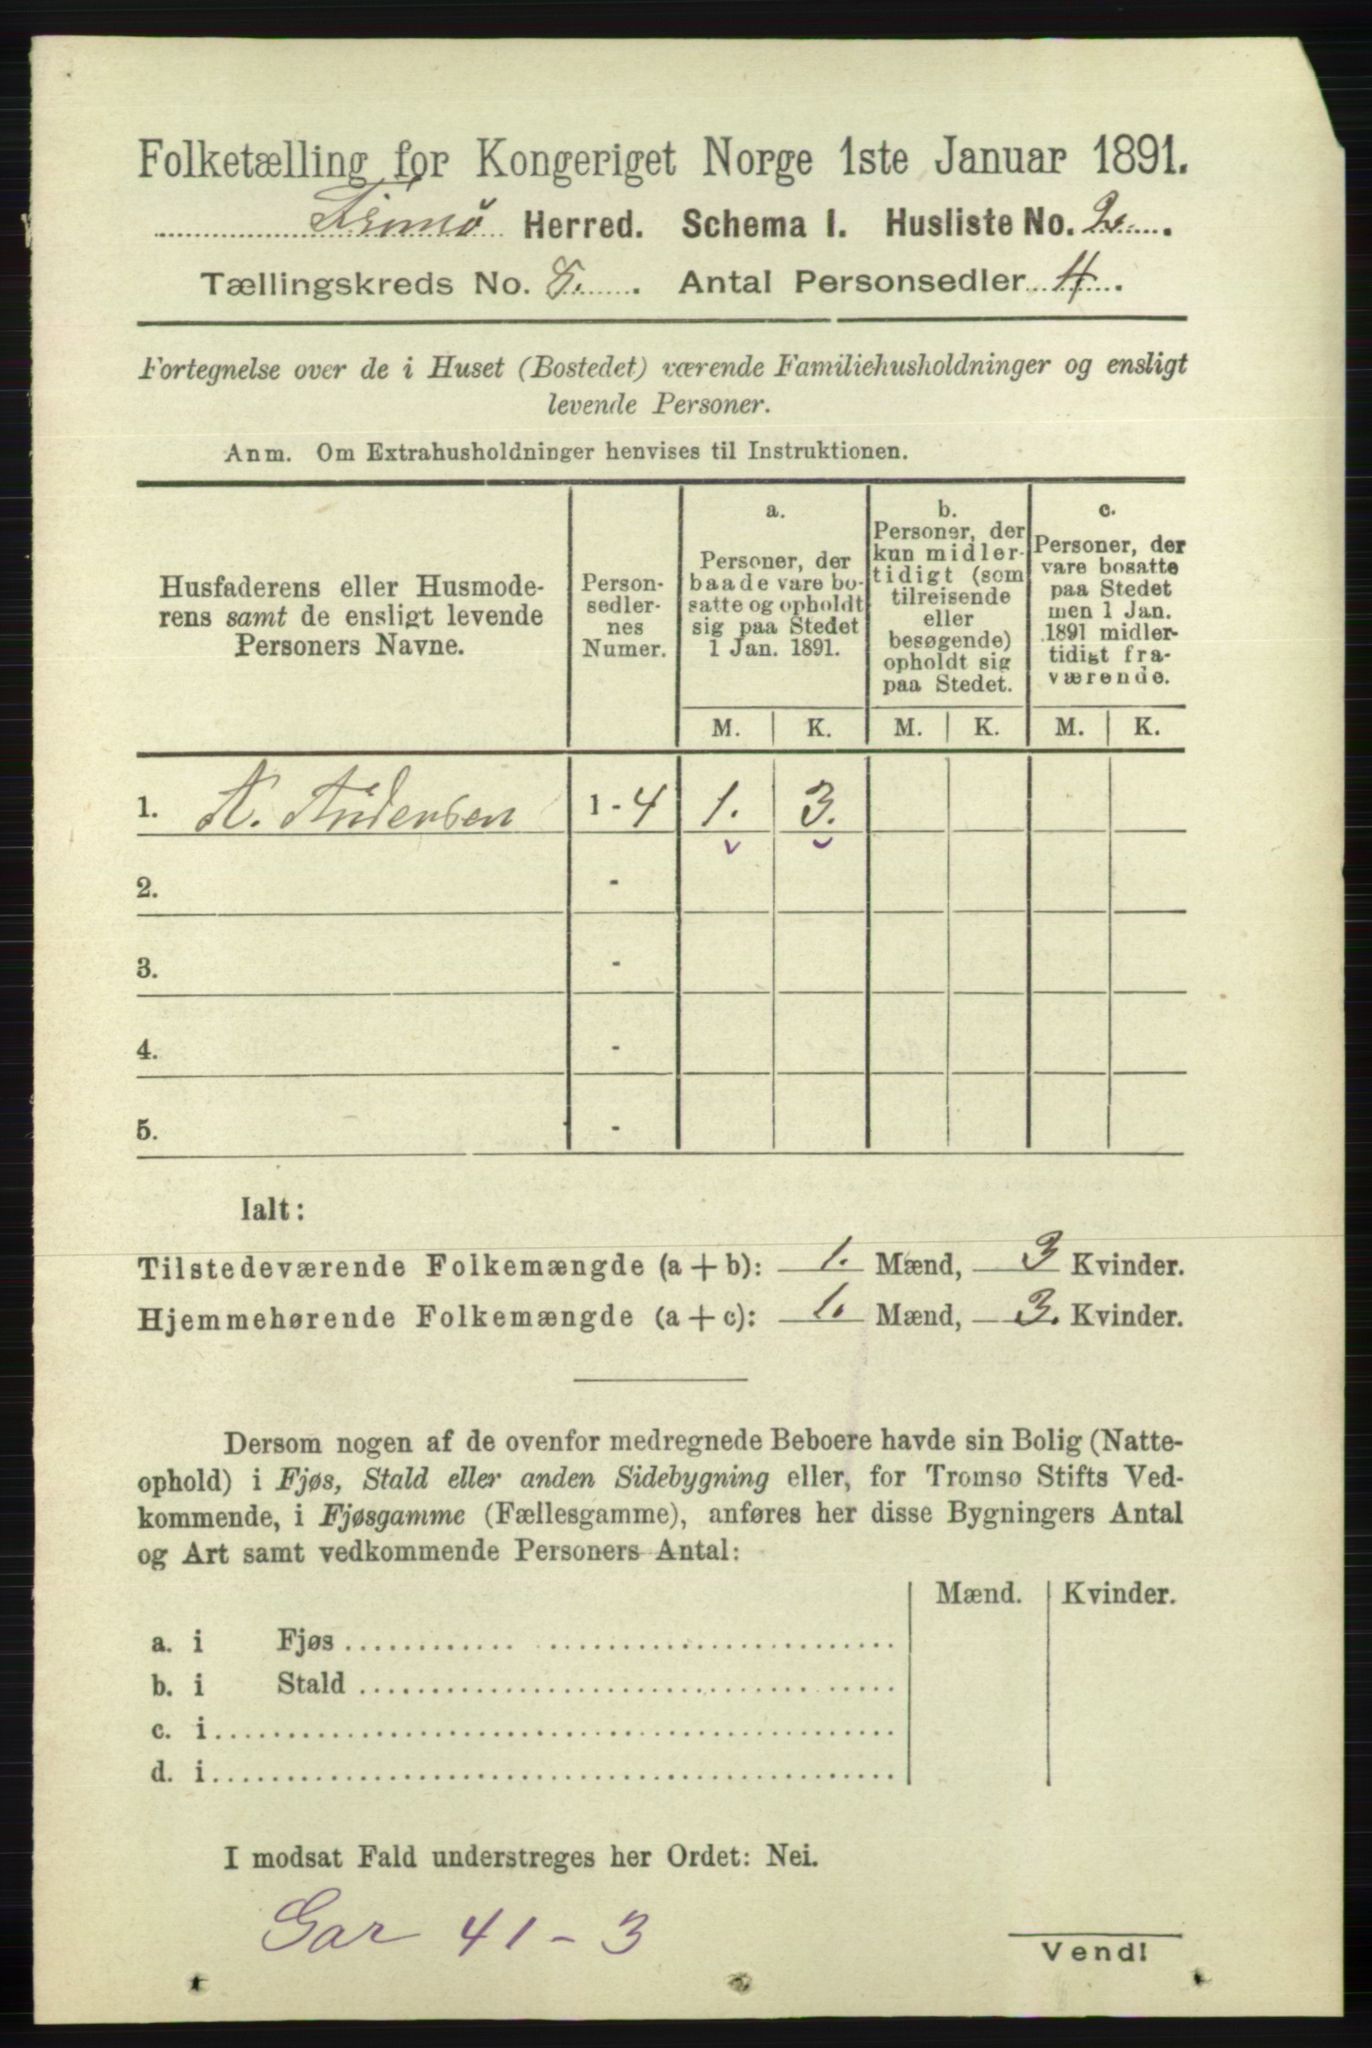 Folketælling for Kongeriget Norge 1ste Januar 1891.
Herred. Schema I. Husliste No. 2.
Tællingskreds No. 8. Antal Personsedler 4.
Fortegnelse over de i Huset (Bostedet) værende Familiehusholdninger og ensligt
levende Personer.
Anm. Om Extrahusholdninger henvises til Instruktionen.
Husfaderens eller Husmode-
rens samt de ensligt levende
Personers Navne.
Person-
sedler-
nes
Numer.
a.
Personer, der
baade vare bo-
satte og opholdt
sig paa Stedet
1 Jan. 1891.
b.
Personer, der
kun midler-
tidigt (som
tilreisende
eller
besøgende)
opholdt sig
paa Stedet.
c.
Personer, der
vare bosatte
paa Stedet
men 1 Jan.
1891 midler-
tidigt fra-
værende.
M. K. M. K. M. K.
1. A. Andersen 1 - 4 1. 3.
2. -
3. -
4. -
5. -
Ialt:
Tilstedeværende Folkemængde (a + b): 1. Mænd, 3 Kvinder.
Hjemmehørende Folkemængde (a + c): 1. Mænd, 3. Kvinder.
Dersom nogen af de ovenfor medregnede Beboere havde sin Bolig (Natte-
ophold) i Fjøs, Stald eller anden Sidebygning eller, for Tromsø Stifts Ved-
kommende, i Fjøsgamme (Fællesgamme), anføres her disse Bygningers Antal
og Art samt vedkommende Personers Antal:
Mænd. Kvinder.
a. i Fjøs
b. i Stald
c. i
d. i
I modsat Fald understreges her Ordet: Nei.
Gar 41-3
Vend!